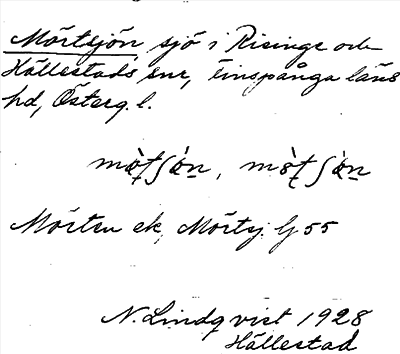 Mörtsjön, sjö i Risinge och
Hällestads snr, Finspånga läns
hd, Österg. l.
Mörten ek, Mörtsj. G 55
N. Lindqvist 1928
Hällestad